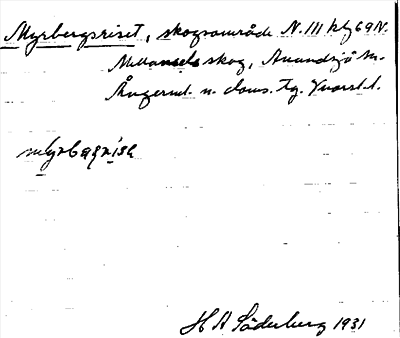 Myrbergsriset, skogsområde N. III kly 69 N.
Mellansels skog, Anundsjö sn.
Ångerml. n. doms. Tg. Kvarst. l.
H A Söderberg 1931